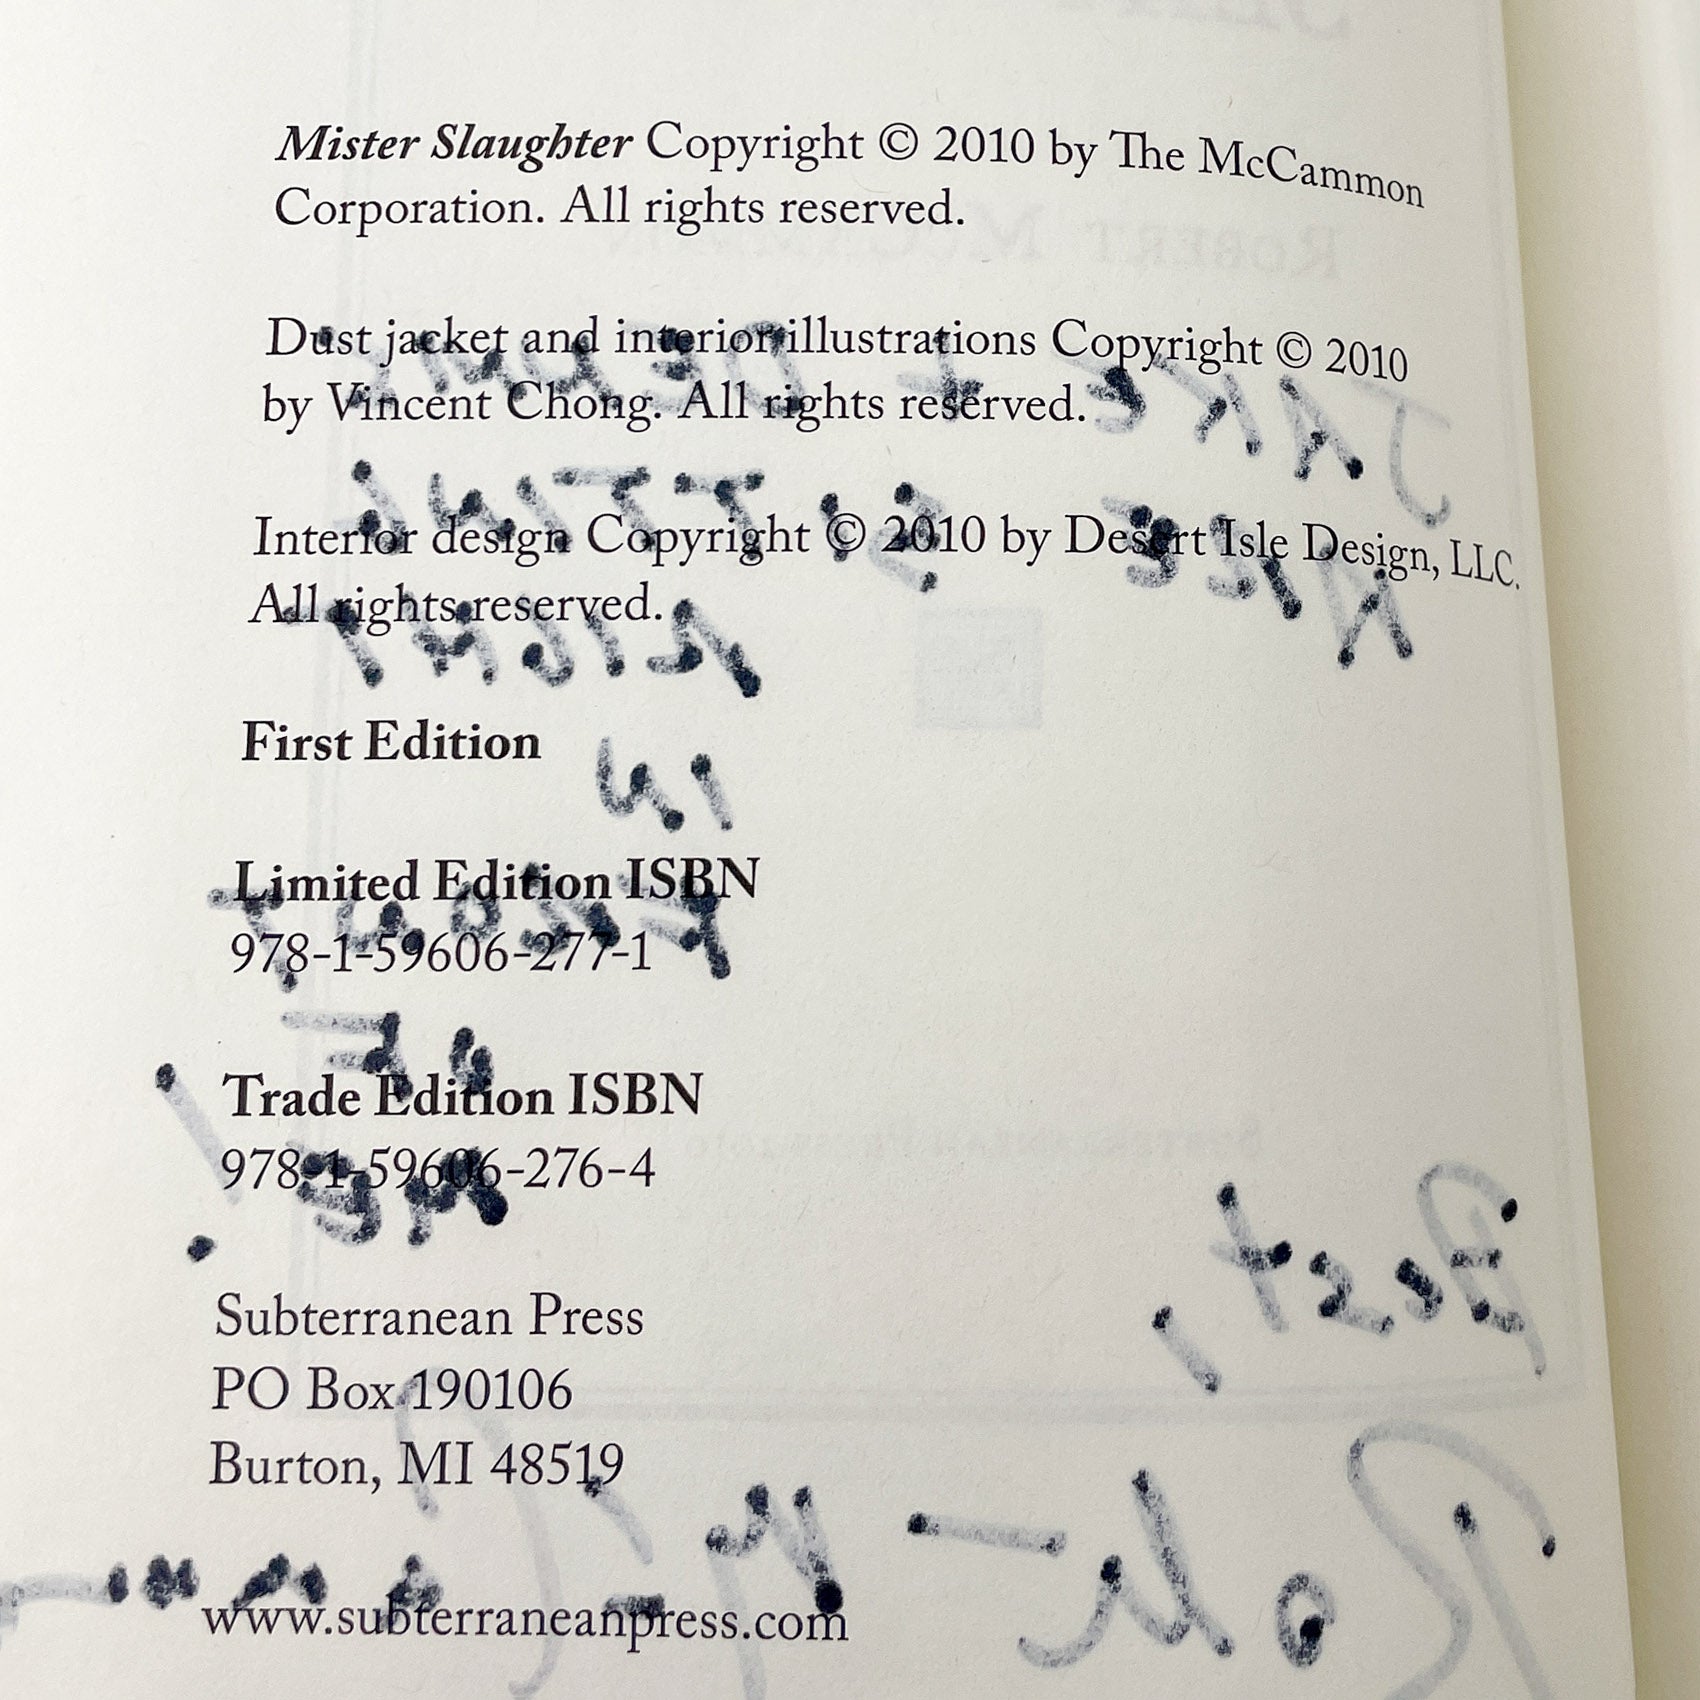 Mister Slaughter Copyright © 2010 by The McCammon
Corporation. All rights reserved.
Dust jacket and interior illustrations Copyright © 2010
by Vincent Chong. All rights reserved.
Interior design Copyright © 2010 by Desert Isle Design, LLC.
All rights reserved.
First Edition
Limited Edition ISBN
978-1-59606-277-1
Trade Edition ISBN
978-1-59606-276-4
Subterranean Press
PO Box 190106
Burton, MI 48519
www.subterraneanpress.com